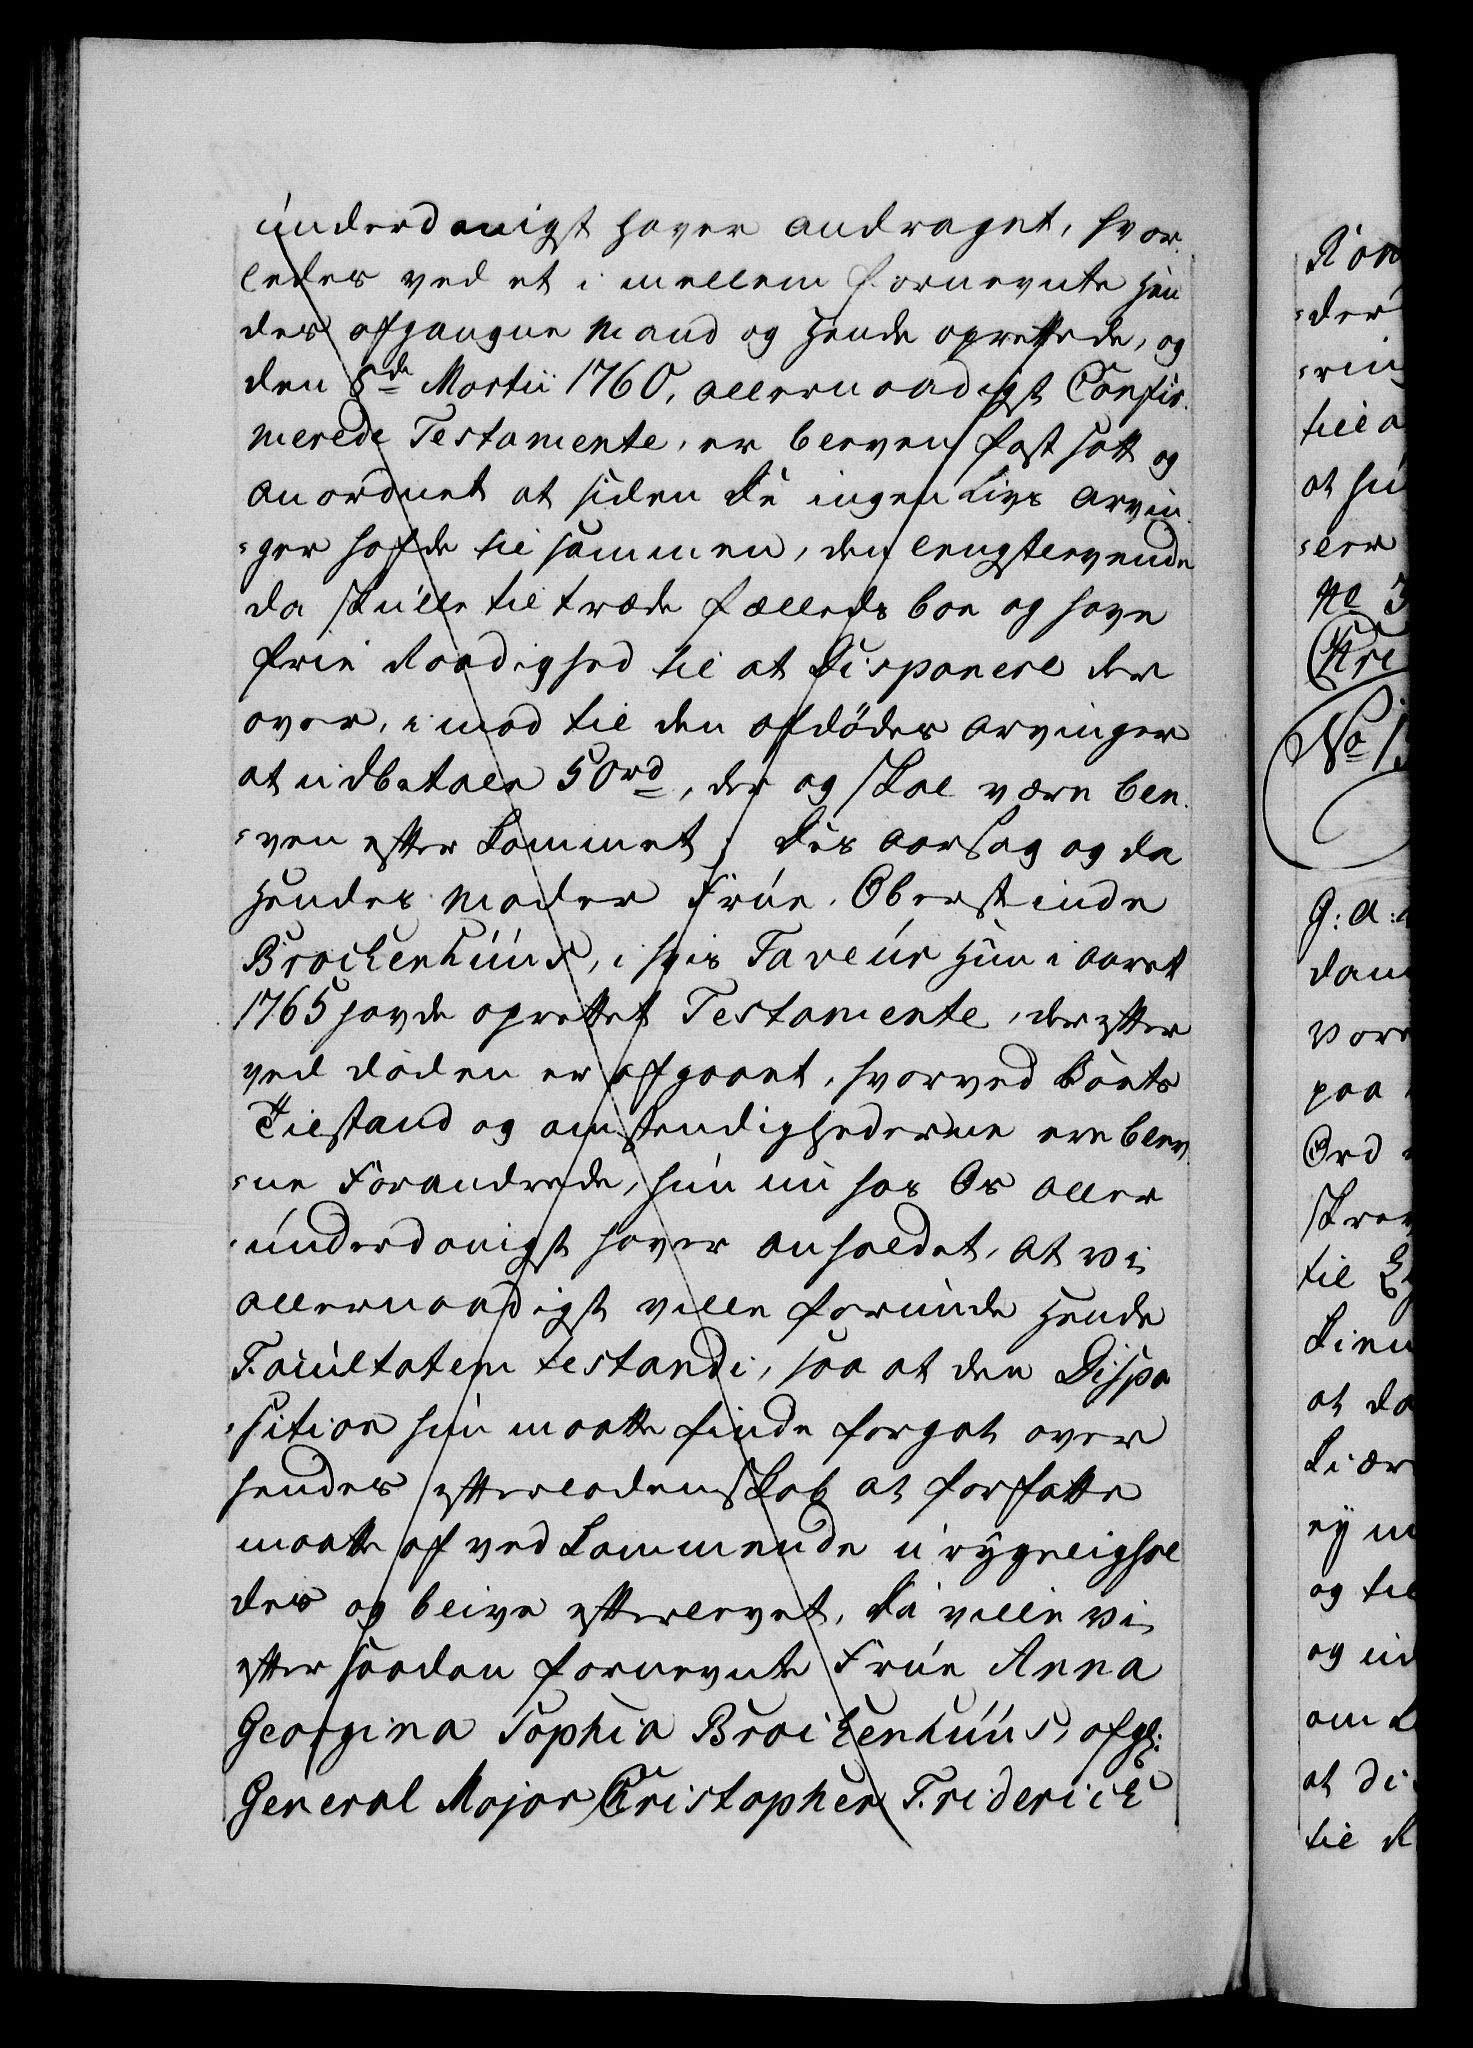 underdanigst haver andraget, hvor-
ledes ved et i mellem fornevnte Hen
des afgangne Mand og Hende oprettede, og
den 5de Martii 1760, allernaadigst Confir-
merede Testamente, er bleven fast satt og
anordnet at siden de ingen Livs Arvin-
-ger hafde til sammen, den lengstlevende
da skulle tiltræde fælleds boe og have
frie Raadighed til at disponere der
over, imod til den afdødes Arvinger
at udbetale 50rd, der og skal være ble-
-ven efter kommet; dis aarsag og da
Hendes Moder Frue Oberstinde
Brockenhuus, i hvis Faveur Hun i Aaret
1765 havde oprettet Testamente, der efter
ved døden er afgaaet, hvorved Boets
Tilstand og omstendighederne ere blev-
-ne Forandrede, hun nu hos Os aller
-underdanigst haver anholdet, at vi
allernaadigst ville forunde Hende
Facultatem testandi, saa at den Dispo
-sition hun maatte finde forgot over
hendes efterladenskab at forfatte
maatte af vedkommende u-rygelighol
des og blive efterlevet, Da ville vi
efter saadan fornevnte Frue Anna
Georgina Sophia Brockenhuus, afg:
General Major Christopher Friderich